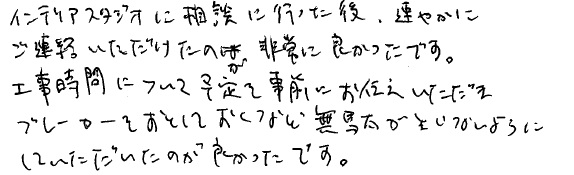 インテリアスタジオに相談に行った後、速やかに
ご連絡いただけたのが非常に良かったです。
工事時間について予定を事前にお伝えいただき
ブレーカーをおとしておくなど無駄が生じないように
していただいたのが良かったです。